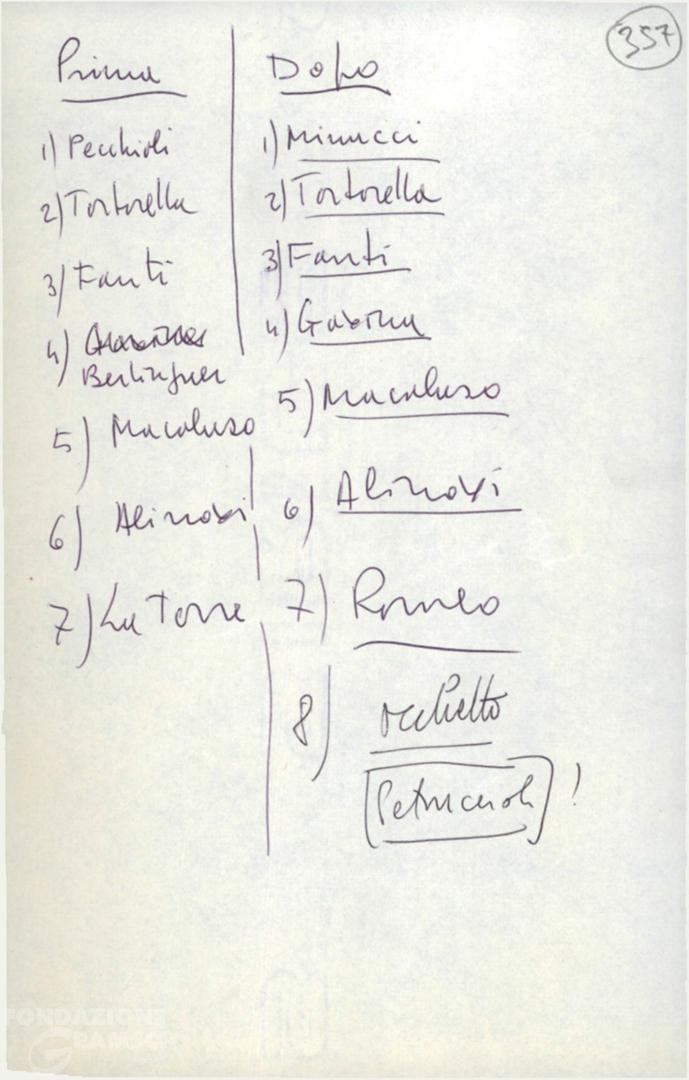 357
Prima
1) Pecchioli
2) Tortorella
3) Fanti
4)
Berlinguer
5) Macaluso
6) Alinovi
7) La Torre
Dopo
1) Minucci
2) Tortorella
3) Fanti
4) Gavina
5) Macaluso
6) Alinovi
7) Romeo
8) occhetto
Petruccioli !
FONDAZIONE
GRAMSCI